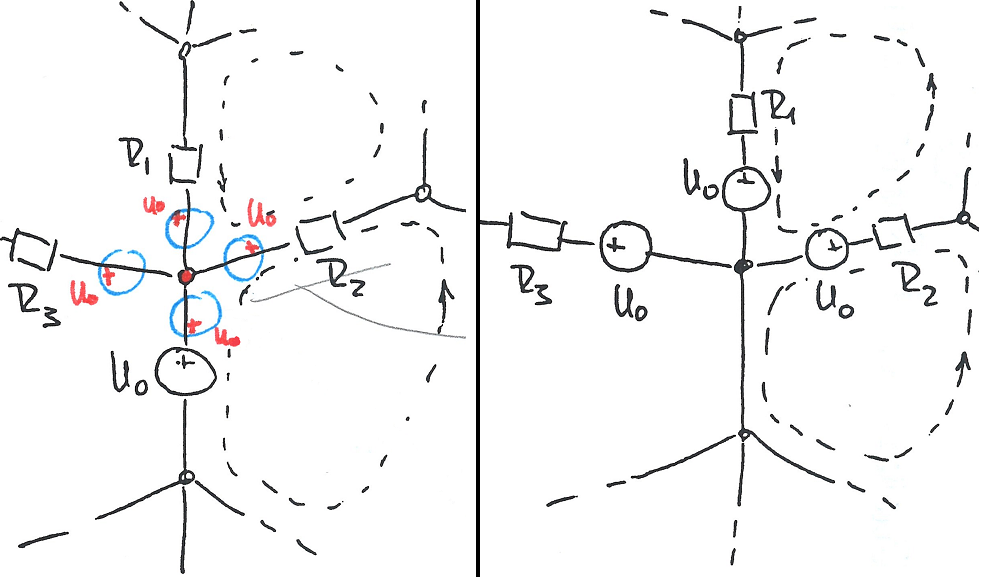 R1
U0
U0
R2
U0
R3
U0
U0
+
+
+
+
+
R1
U0
+
R3
+
U0
+
U0
R2